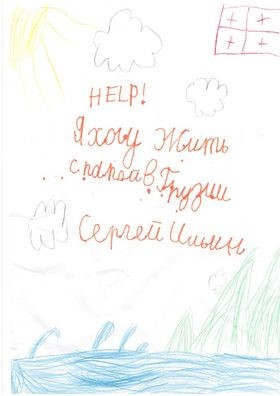 HELP!
Я хочу Жить
с папой в Грузии
Сергей Ильин